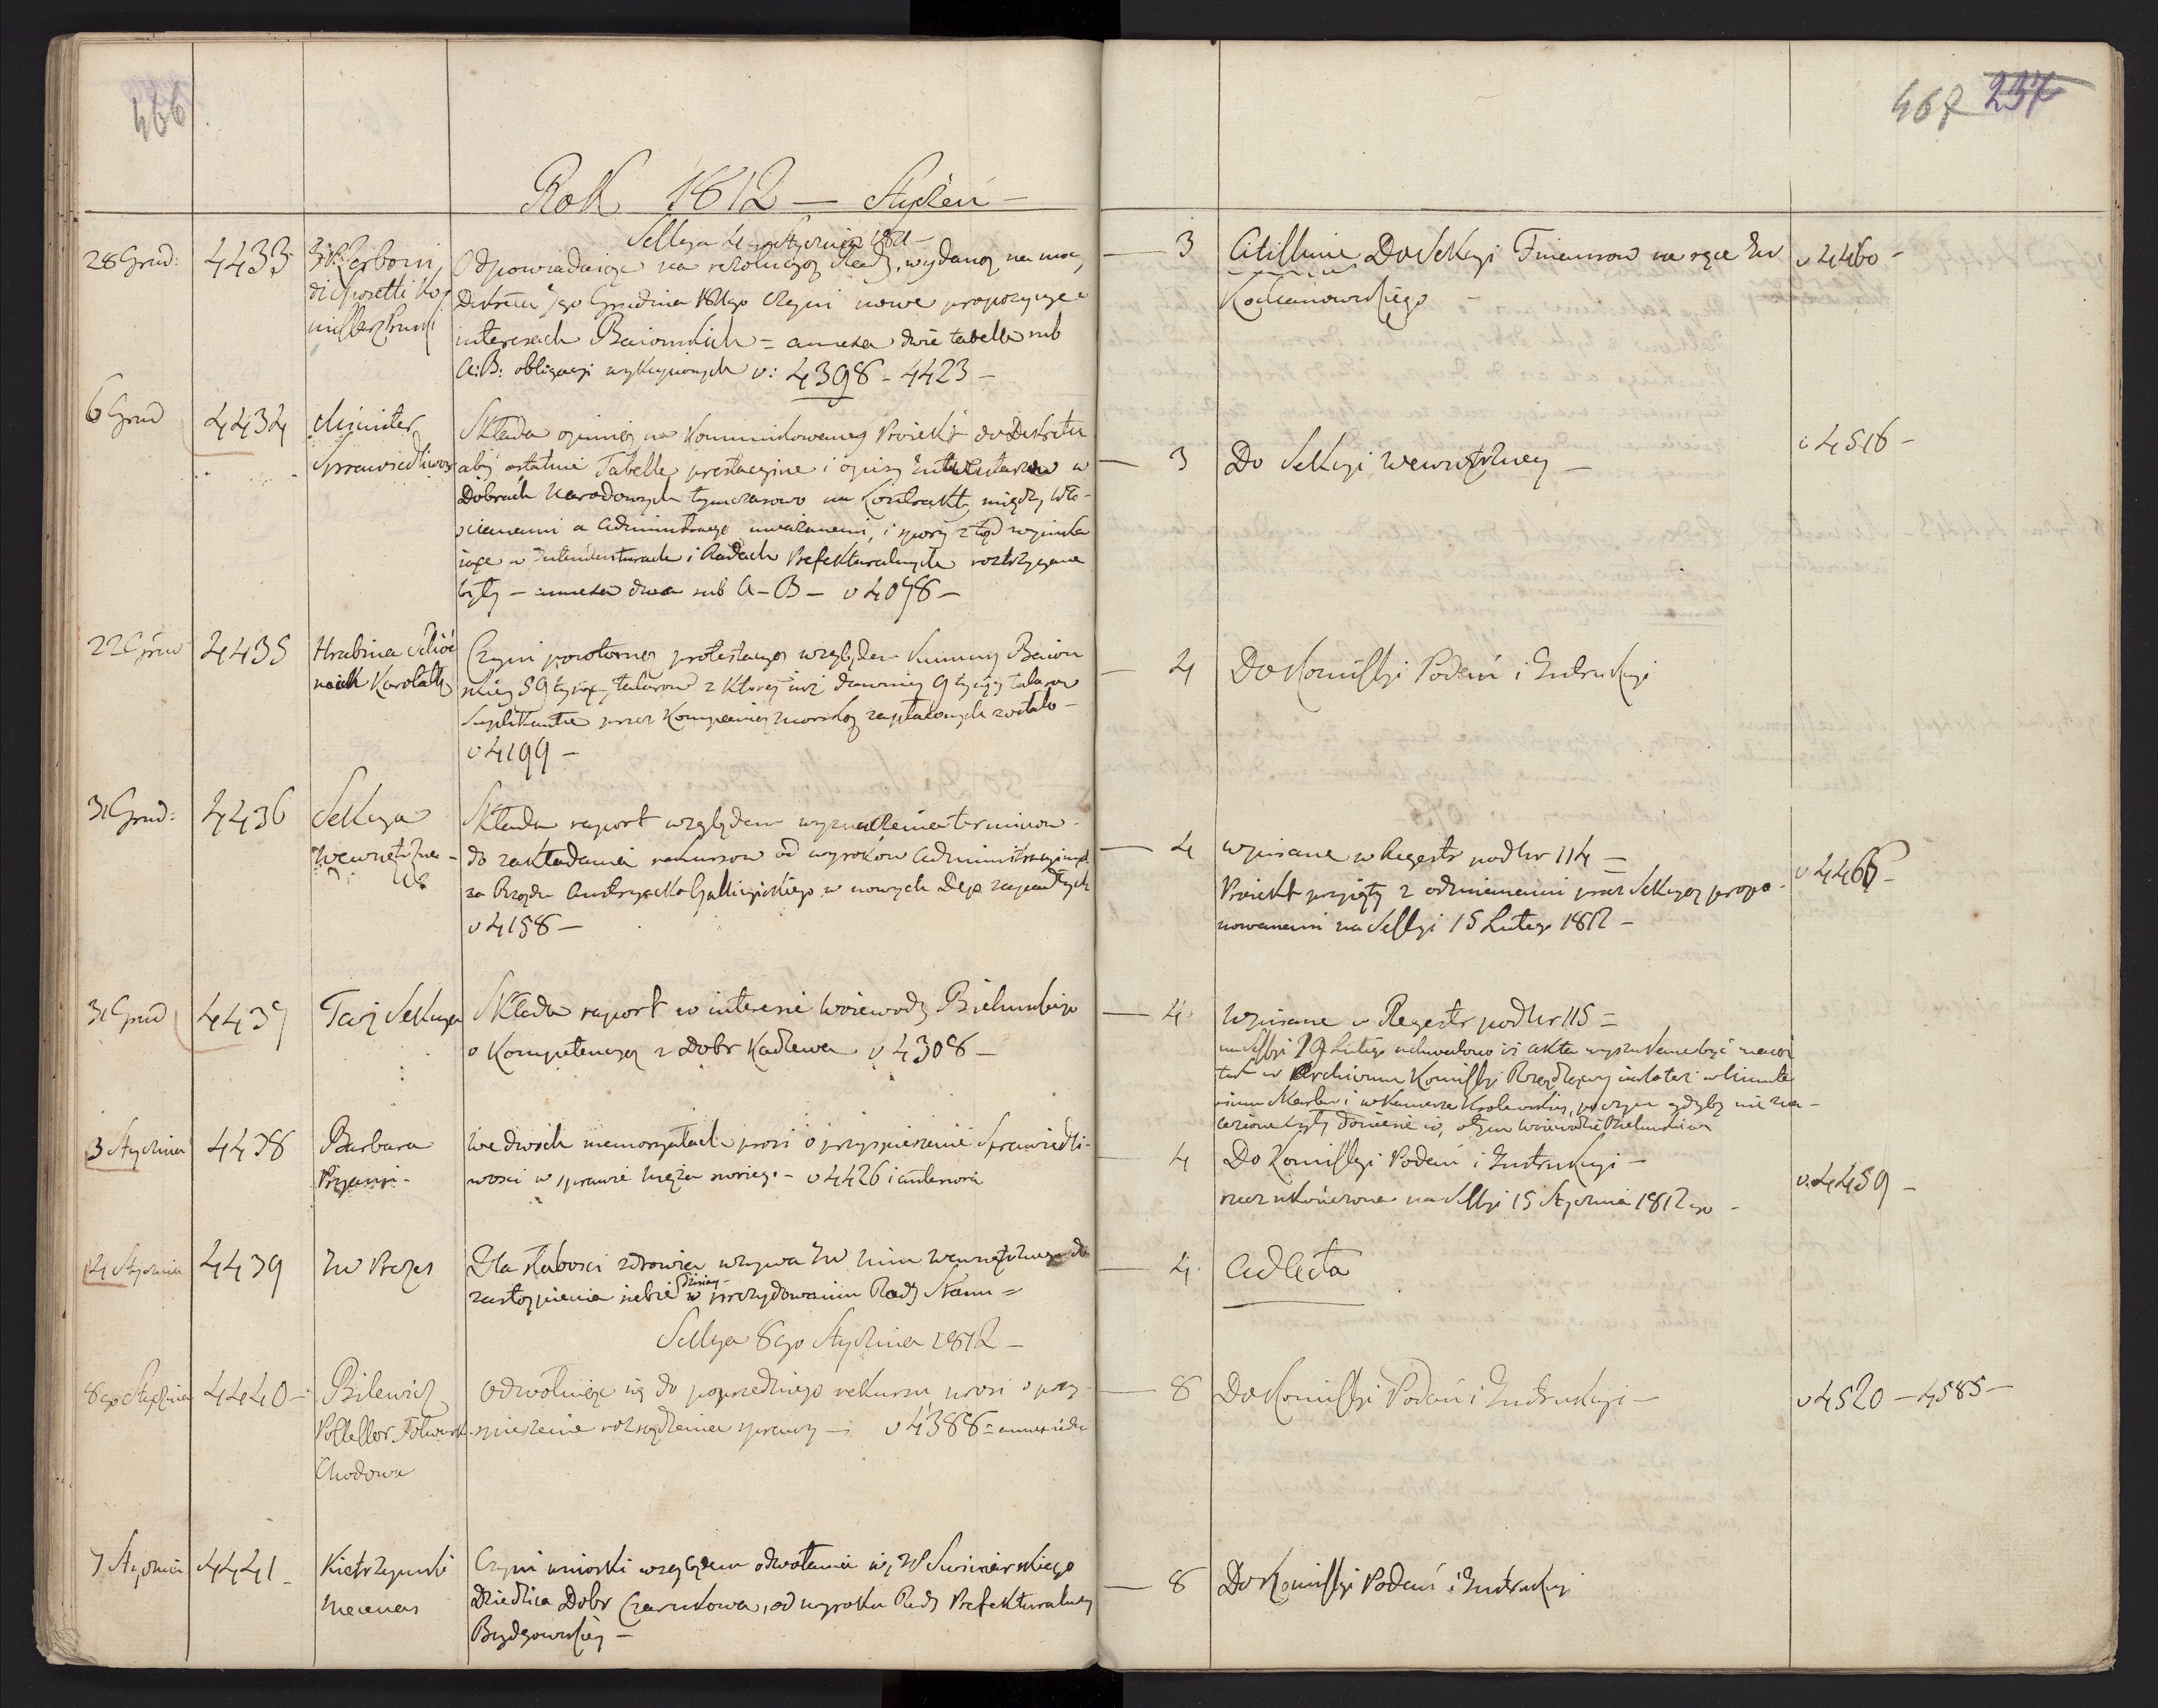 466
467 237
Rok 1812 — Styczeń —
Sessya 4 Stycznia
28 Grud: 4433 Zerboni
di Sposetti Ko
missarz Pruski
Odpowiadaiąc na rezolucyą Rady, wydaną na mocy
Dekretu Grudnia czyni nowe propozycye w
interesach Baiońskich = annexa dwie tabelle sub
A: B: obligacyi wykupionych v: 4398 - 4423 —
— 3 Citissime Do Sekcyi Finansow na ręce
Kochanowskiego —
v 4460 -
6 Grud 4434 Minister
Sprawiedliwos
Składa opinię na kommunikowany Proiekt do Dekretu
aby ostatnie Tabelle prestacyine i opisy Inwentarzow w
Dobrach Narodowych tymczasowo za Kontrakty między Wło-
scianami a Administracyą uważanemi, i spory ztąd wynika
iące w Intendenturach i Radach Prefekturalnych roztrzygane
były — annexa dwa sub A - B — v 4078 —
— 3 Do Sekcyi Wewnętrzney —
v 4516 -
22 Grud 4435 Hrabina
Karolath
Czyni powtorną protestacyą względem Summy Baion
skiey 59 tysięcy talarow z ktorey iuż dawniey 9 tysięcy talarow
Suplikantce przez Kompanią morską zapłaconych zostało —
v 4199 —
— 4 Do Komissyi Podań i Instrukcyi
31 Grud: 4436 Sekcya
Wewnętrzna -
Składa raport względem wyznaczenia terminow
do zakładania rekursow od wyrokow Administracyinych
za Rządu Austryacko Gallicyiskiego w nowych Dep: zapadłych
v 4158 —
— 4 wpisane w Regestr pod Nr 114 —
Proiekt przyięty z odmianami przez Sekcyą propo-
nowanemi na Sessyi 15 Lutego 1812 —
v 4466 -
31 Grud 4437 Taż Sekcya
Składa raport w interesie Woiewody Bielinskiego
o Kompetencyą z Dobr Kadlewa v 4308 —
— 4 Wpisane w Regestr pod Nr 115 =
na Sessyi Lutego uchwalono iż akta wyszukane być
w Archivum Komissyi Rządzącey
Skarbu i w Kamerze Krolewskiey, po czym gdyby nie zna-
lezione były donieść o tym Woiewodzie Bielinskiemu
3 Stycznia 4438 Barbara
We dwoch memoryałach prosi o przyspieszenie Sprawiedli-
wosci w sprawie męża swoiego - v 4426 i anteriora
— 4 Do Komissyi Podań i Instrukcyi —
rzecz ukończona na Sessyi 15 Stycznia 1812 go -
v. 4459 -
4 Stycznia 4439 JW Prezes
Dla słabosci zdrowia wzywa JW Min Wewnętrznego do
zastąpienia siebie dzisiay w prezydowaniu Rady Stanu =
— 4 Ad Acta
Sessya 8go Stycznia 1812 —
8go Stycznia 4440 - Bilewicz
Possessor Folwark
Chodowa
Odwołuiąc się do poprzedniego rekursu prosi o przy-
spieszenie rozsądzenia sprawy — v 4386 =
— 8 Do Komissyi Podań i Instrukcyi —
v 4520 — 4585 —
7 Stycznia 4441 - Kietrzynski
Mecenas
Czyni wnioski względem odwołania się W Swiniarskiego
Dziedzica Dobr Czarnkowa, od wyroku Rady Prefekturalney
Bydgowskiey —
— 8 Do Komissyi Podań i Instrukcyi